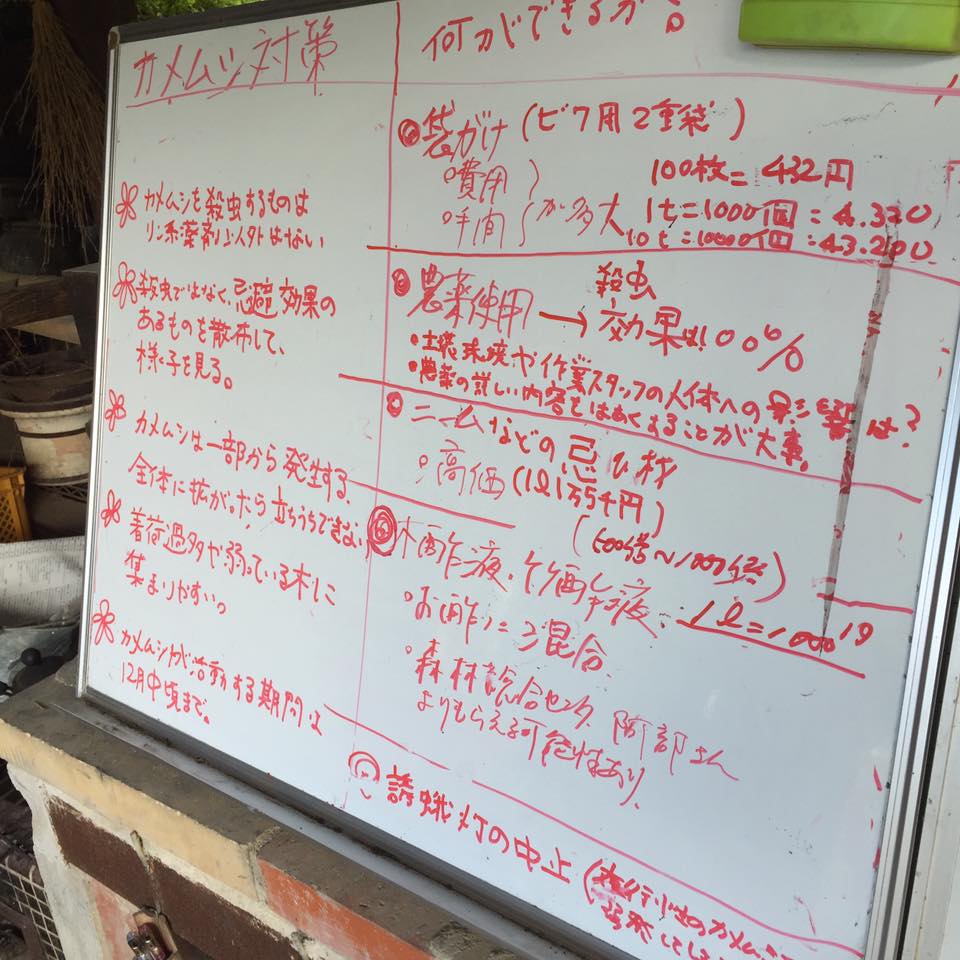 カメムシ対策
カメムシを殺虫するものは
リン系薬剤以外はない
殺虫ではなく、忌避効果の
あるものを散布して、
様子を見る。
カメムシは一部から発生する。
全体に拡がったら立ちうちできない
着荷過多や弱っている木に
集まりやすい。
カメムシが活動する期間は
12月中頃まで。
何ができるか。
袋がけ(ビワ用2重袋)
費用
手間 が多大
100枚=432円
1t=1000個:4.320
10t=10000個:43.200
農薬使用→殺虫
効果は100%
土壌環境や作業スタッフの人体への影響は?
農薬の詳しい内容をはあくすることが大事。
ニームなどの忌ひ材
高価(1ℓ1万5千円)
(500倍〜1000倍)
木酢液、竹酢液 1ℓ=1000円
お酢に 混合
森林総合センタ 阿部さん
よりもらえる可能性あり
誘蛾灯の中止